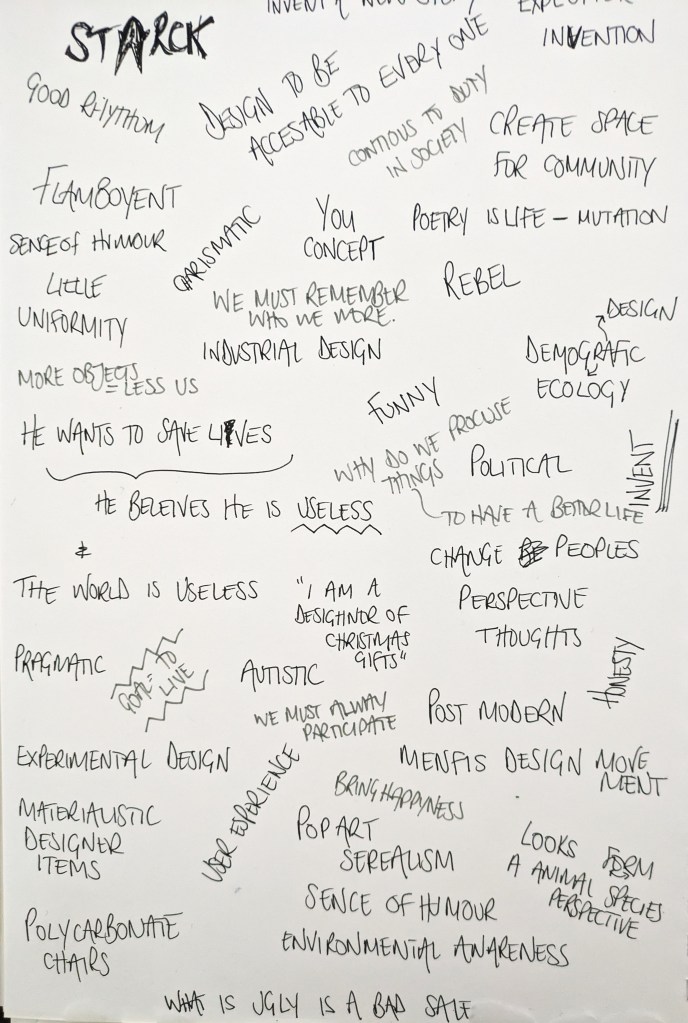 INVENT A NEW
STARCK
INVENTION
GOOD RHYTHUM
DESIGN TO BE
ACCESABLE TO EVERY ONE
CONTIOUS TO DUTY
IN SOCIETY
CREATE SPACE
FOR COMMUNITY
FLAMBOYENT
SENSE OF HUMOUR
QARISMATIC
YOU
CONCEPT
POETRY IS LIFE – MUTATION
LITTLE
UNIFORMITY
WE MUST REMEMBER
WHO WE WERE.
REBEL
INDUSTRIAL DESIGN
DESIGN
DEMOGRAFIC
ECOLOGY
MORE OBJECTS
= LESS US
FUNNY
HE WANTS TO SAVE LIVES
WHY DO WE PROCUSE
THINGS
POLITICAL
INVENT
TO HAVE A BETTER LIFE
HE BELEIVES HE IS USELESS
&
THE WORLD IS USELESS
CHANGE PEOPLES
PERSPECTIVE
THOUGHTS
"I AM A
DESIGHNOR OF
CHRISTMAS
GIFTS"
HONESTY
PRAGMATIC
GOAL= TO
LIVE
AUTISTIC
WE MUST ALWAY
PARTICIPATE
POST MODERN
EXPERIMENTAL DESIGN
USER EXPERIENCE
MENFIS DESIGN MOVE
MENT
BRING HAPPYNESS
MATERIALISTIC
DESIGNER
ITEMS
POP ART
SEREALISM
LOOKS FORM
A ANIMAL SPECIES
PERSPECTIVE
SENCE OF HUMOUR
POLYCARBONATE
CHAIRS
ENVIRONMENTAL AWARENESS
WHAT IS UGLY IS A BAD SALE